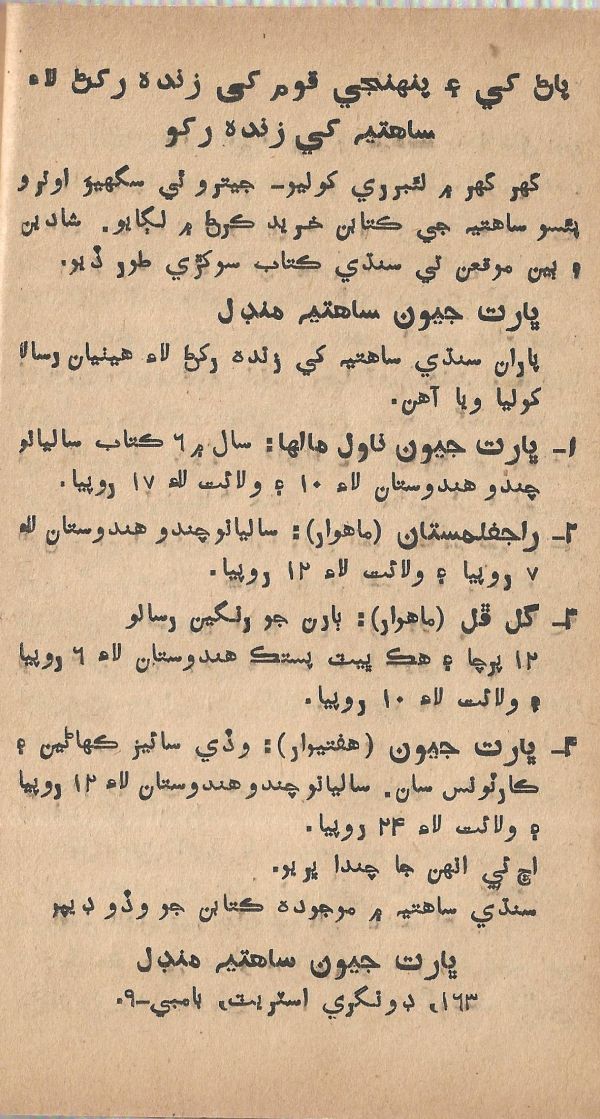 پاڻ کي ۽ پنهنجي قوم کي زنده رکڻ لاءِ
ساهتيه کي زنده رکو
گهر گهر ۾ لئبرري کوليو- جيترو ٿي سگهيو اوترو
پئسو ساهتيه جي ڪتابن خريد ڪرڻ ۾ لڳايو. شادين
۽ ٻين موقعن تي سنڌي ڪتاب سوکڙي طور ڏيو.
ڀارت جيون ساهتيه منڊل
پاران سنڌي ساهتيه کي زنده رکڻ لاءِ هيٺيان رسالا
کوليا ويا آهن.
۱- ڀارت جيون ناول مالها: سال ۾ ٦ ڪتاب ساليانو
چندو هندوستان لاءِ ۱۰ ۽ ولائت لاءِ ۱۷ روپيا.
۲- (ماهوار): ساليانو چندو هندوستان لاءِ
۷ روپيا ۽ ولائت لاءِ ۱۲ روپيا.
۳- گل ڦل (ماهوار): ٻارن جو رنگين رسالو
۱۲ پرچا ۽ هڪ ڀيٽ پستڪ هندوستان لاءِ ٦ روپيا
۽ ولائت لاءِ ۱۰ روپيا.
۴- ڀارت جيون (هفتيوار): وڏي سائيز ڪهاڻين ۽
ڪارٽونس سان. ساليانو چندو هندوستان لاءِ ۱۲ روپيا
۽ ولائت لاءِ ۲۴ روپيا.
اڄ ئي انهن جا چندا ڀريو.
سنڌي ساهتيه ۾ موجوده ڪتابن جو وڏو ڍير
ڀارت جيون ساهتيه منڊل
۱٦۳، ڊونگري اسٽريٽ، بامبي-۹.